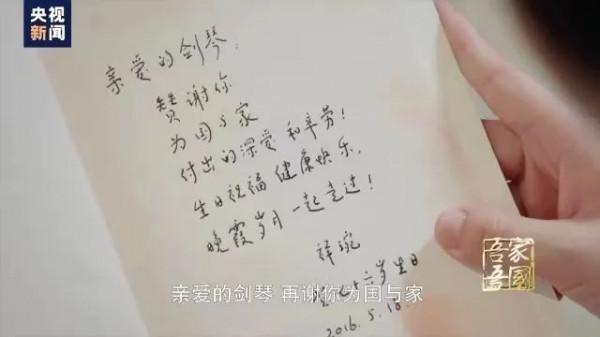 央视
新闻
亲爱的剑琴:
赞谢你
为国与家
付出的深爱和辛劳!
生日祝福 健康快乐,
晚霞岁月一起走过!
祥琬
七十六岁生日
2016.5.18
亲爱的剑琴 再谢你为国与家
吾家
吾国